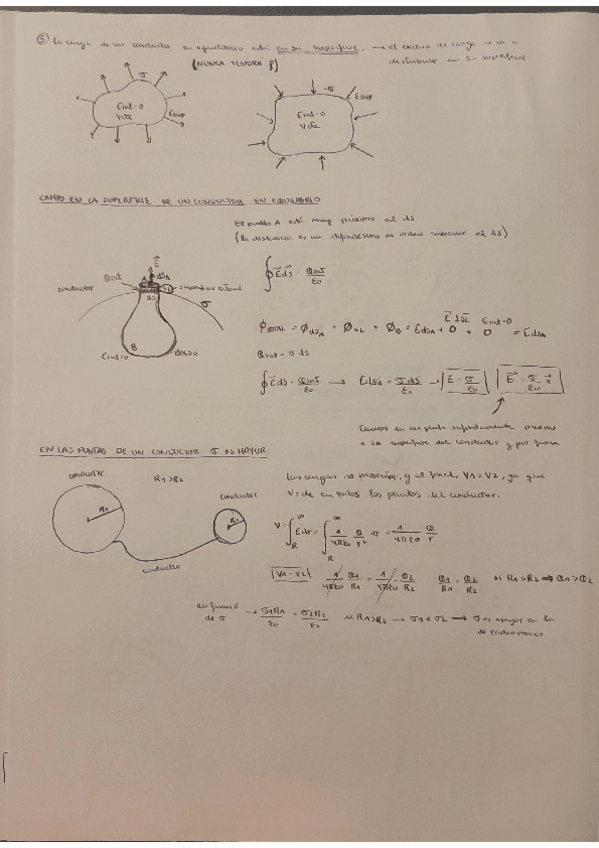 ⑤ La carga de un conductor en equilibrio está en su superficie. → el exceso de carga se va a
(NUNCA TENDRÁ ρ) distribuir en su superficie
σ
Eint=0
Vcte
Esup
-σ
Esup
Eint=0
Vcte
CAMPO EN LA SUPERFICIE DE UN CONDUCTOR EN EQUILIBRIO
El punto A está muy próximo al ds
(la distancia es un infinitésimo de orden superior al ds)
E⃗
Qint
A
dsA
conductor
superficie lateral
ds
σ
B
Eint=0
∮ E⃗ ds⃗ = Qint/ε0
ϕTOTAL = ϕdsA + ϕSL + ϕB = EdsA + 0 + 0 = EdsA
E⃗ ⊥ SL
Eint=0
Qint = σ ds
∮ E⃗ ds⃗ = Qint/ε0 → EdsA = σ ds/ε0 → E = σ/ε0
E⃗ = σ/ε0 n⃗
Campo en un punto infinitamente próximo
a la superficie del conductor y por fuera
EN LAS PUNTAS DE UN CONDUCTOR σ ES MAYOR
conductor
R1>R2
conductor
R1
R2
conductor
Las cargas se moverán, y al final, V1=V2, ya que
V=cte en todos los puntos del conductor.
V = ∫_R^∞ Edr = ∫_R^∞ 1/4πε0 Q/r² dr = 1/4πε0 Q/r
V1=V2
1/4πε0 Q1/R1 = 1/4πε0 Q2/R2
Q1/R1 = Q2/R2
si R1>R2 ⇒ Q1>Q2
en función
de σ
→ σ1R1/ε0 = σ2R2/ε0
si R1>R2 → σ1<σ2 ⟹ σ es mayor en la
de radio menor